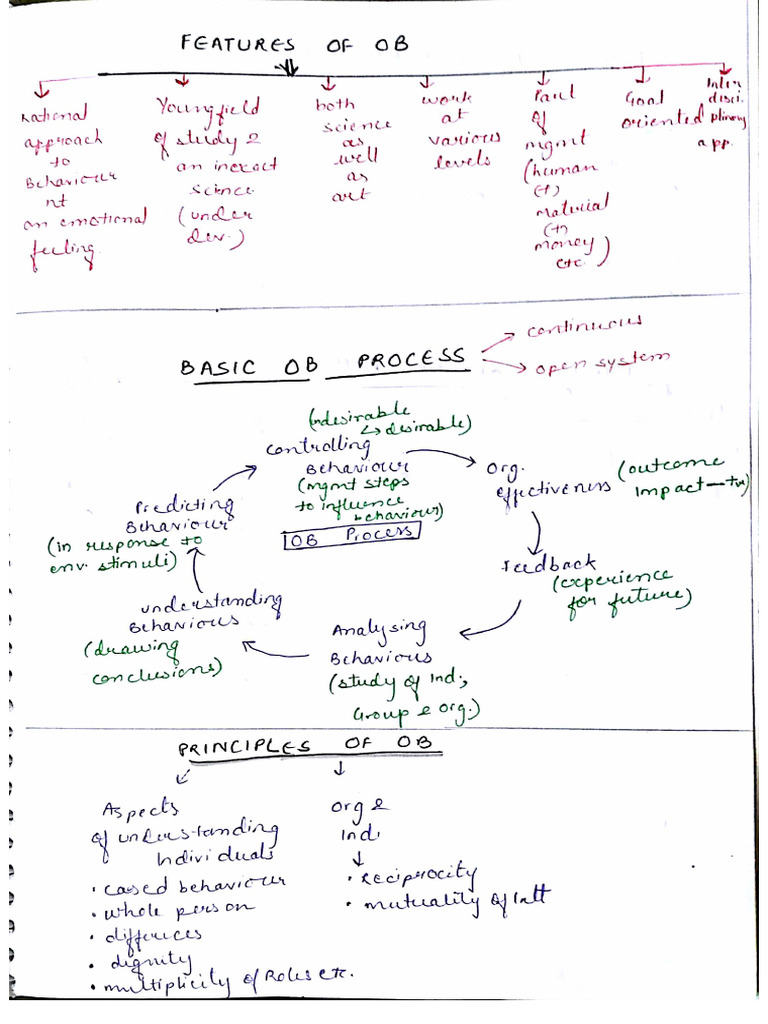 FEATURES OF OB
Rational
approach
to
Behaviour
nt
an emotional
feeling.
Young field
of study &
an inexact
science
(under
dev.)
both
science
as
well
as
art
work
at
various
levels
Part
of
mgmt
(human
(+)
material
(+)
money
etc.)
Goal
oriented
Inter
disci.
plinary
app.
BASIC OB PROCESS
continuous
open system
(undesirable
↳ desirable)
Controlling
Behaviour
(mgmt steps
to influence
behaviour)
OB Process
Org.
effectiveness
(outcome
impact-+ve)
Feedback
(experience
for future)
Analysing
Behaviours
(study of Ind.,
Group & Org.)
understanding
Behaviours
(drawing
conclusions)
Predicting
Behaviour
(in response to
env. stimuli)
PRINCIPLES OF OB
Aspects
of understanding
Individuals
• cased behaviour
• whole person
• differnces
• dignity
• multiplicity of Roles etc.
Org &
Ind.
• reciprocity
• mutuality of Intt